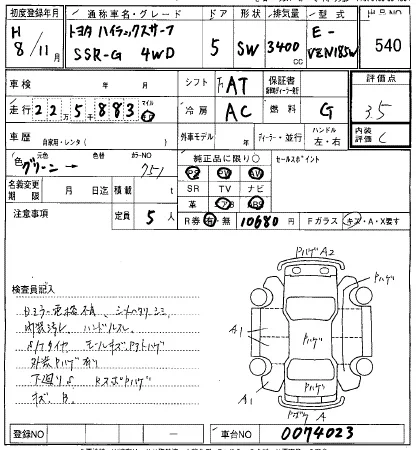 初度登録年月 通称車名・グレード ドア 形状 排気量 型式 出品NO
H 8/11月 トヨタ ハイラックスサーフ SSR-G 4WD 5 SW 3400cc E-VZN185W 540
車検 年 月 シフト F AT 保証書 評価点
走行 2 2 万 5 千 8 8 3 マイル km 冷房 AC 燃料 G 3.5
車歴 自家用・レンタ( ) 外車モデル 年 ディーラー・並行 ハンドル 左・右 内装評価 C
色 元色 グリーン 色替 カラーNO 751 純正品に限り○ セールスポイント
PS PW SV
名義変更期限 月 日迄 積載 t SR TV ナビ
革 エアB ABS
注意事項 定員 5 人 R券 有・無 10680 円 Fガラス キズ・A・X要す
検査員記入
Dミラー電格不良、シートヘタリ シミ
内装汚レ ハンドルスレ
外装Pハゲ有り
下廻りS
キズ、B.
PハゲA2
Pハゲ
A1
Pハゲ
Pハゲ
A1
PボケA
登録NO ー 車台NO 0074023